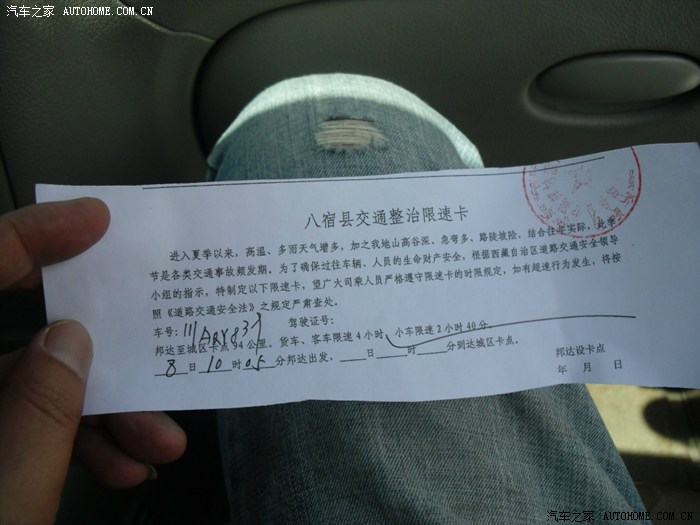 汽车之家 AUTOHOME.COM.CN
八宿县交通整治限速卡
进入夏季以来，高温、多雨天气增多，加之我地山高谷深、急弯多、路陡坡险，结合往年实际，此季
节是各类交通事故频发期。为了确保过往车辆、人员的生命财产安全，根据西藏自治区道路交通安全领导
小组的指示，特制定以下限速卡，望广大司乘人员严格遵守限速卡的时限规定，如有超速行为发生，将按
照《道路交通安全法》之规定严肃查处。
车号： 驾驶证号：
邦达至城区卡点94公里。货车、客车限速4小时，小车限速2小时40分。
8日10时05分邦达出发，____日____时____分到达城区卡点。
邦达设卡点
年 月 日
汽车之家 AUTOHOME.COM.CN